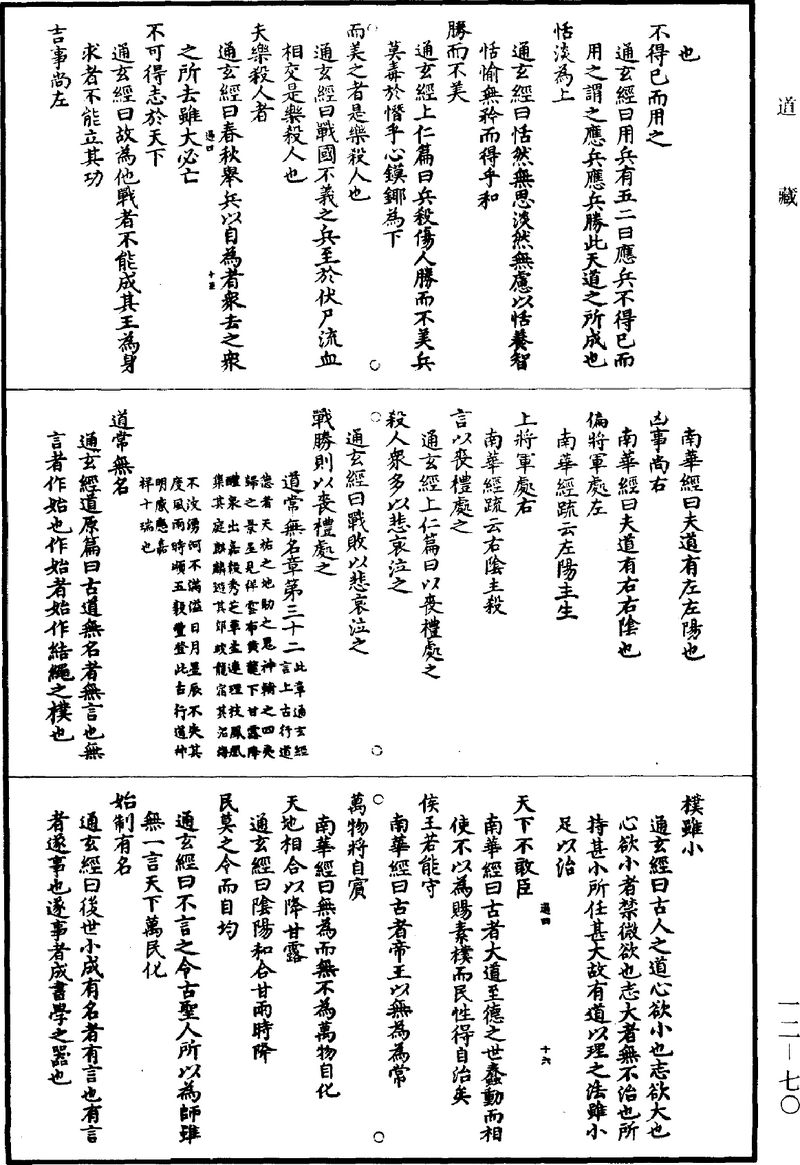 道藏
一二—七〇
也
不得已而用之
通玄經曰用兵有五二曰應兵不得已而
用之謂之應兵應兵勝此天道之所成也
恬淡為上
通玄經曰恬然無思淡然無慮以恬養智
恬愉無矜而得乎和
勝而不美
通玄經上仁篇曰兵殺傷人勝而不美兵
莫毒於憯乎心鏌鎁為下
而美之者是樂殺人也
通玄經曰戰國不義之兵至於伏尸流血
相交是樂殺人也
夫樂殺人者
通玄經曰春秋舉兵以自為者衆去之衆
過四
十五
之所去雖大必亡
不可得志於天下
通玄經曰故為他戰者不能成其王為身
求者不能立其功
吉事尚左
南華經曰夫道有左左陽也
凶事尚右
南華經曰夫道有右右陰也
偏將軍處左
南華經疏云左陽主生
上將軍處右
南華經疏云右陰主殺
言以喪禮處之
通玄經上仁篇曰以喪禮處之
殺人衆多以悲哀泣之
通玄經曰戰敗以悲哀泣之
戰勝則以喪禮處之
道常無名章第三十二
此章通玄經
言上古行道
悳者天祐之地助之鬼神輔之四夷
歸之景星見祥雲布黃龍下甘露降
醴泉出嘉穀秀芝草產連理枝鳳凰
集其庭麒麟遊其郊蛟龍宿其沼海
不汶湧河不滿溢日月星辰不失其
度風雨時順五穀豐登此古行道神
明感應嘉
祥十瑞也
道常無名
通玄經道原篇曰古道無名者無言也無
言者作始也作始者始作結繩之樸也
樸雖小
通玄經曰古人之道心欲小也志欲大也
心欲小者禁微欲也志大者無不治也所
持甚小所任甚大故有道以理之法雖小
足以治
天下不敢臣
過四
十六
南華經曰古者大道至德之世蠢動而相
使不以為賜素樸而民性得自治矣
侯王若能守
南華經曰古者帝王以無為為常
萬物將自賓
南華經曰無為而無不為萬物自化
天地相合以降甘露
通玄經曰陰陽和合甘雨時降
民莫之令而自均
通玄經曰不言之令古聖人所以為師雖
無一言天下萬民化
始制有名
通玄經曰後世小成有名者有言也有言
者遂事也遂事者成書學之器也